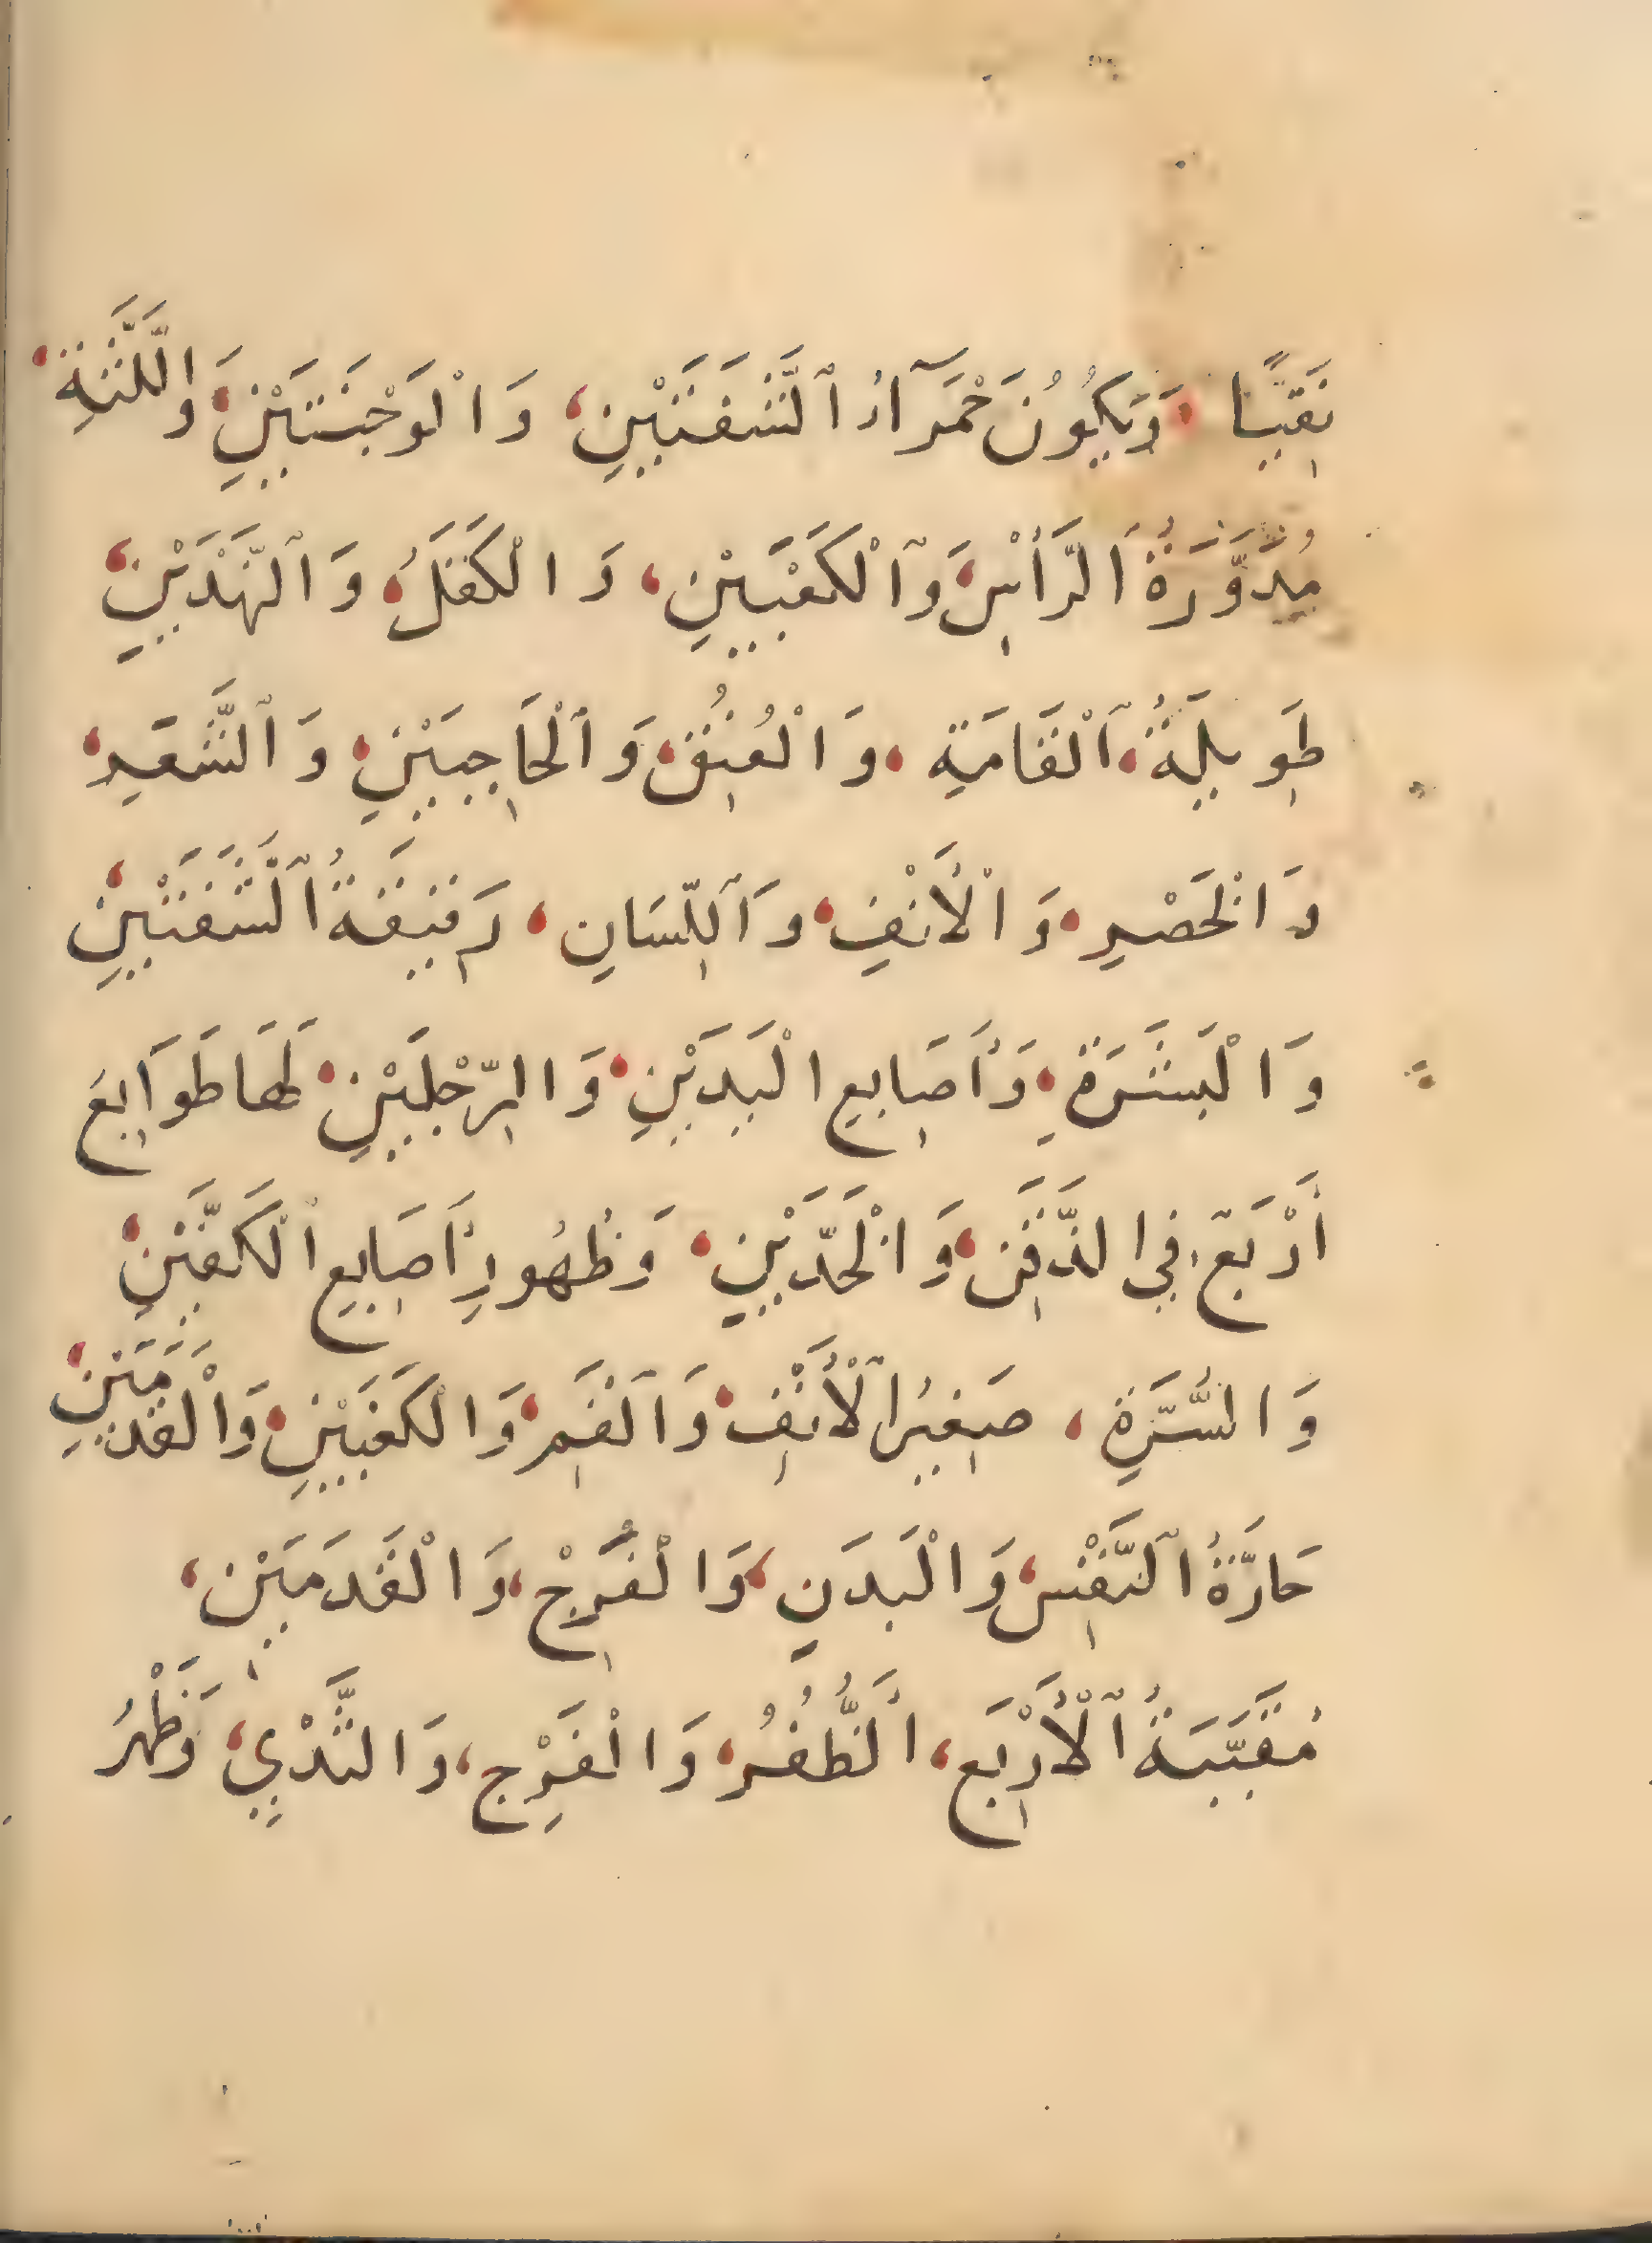 نَقِيًّا وَيَكُونُ حَمْرَآءُ ٱلشَّفَتَيْنِ، وَالْوَجْنَتَيْنِ، وَاللَّثَةِ،
مُدَوَّرَةُ ٱلرَّأْسِ، وَٱلْكَعْبَيْنِ، وَالْكَفَلِ، وَٱلنَّهْدَيْنِ،
طَوِيلَةُ، ٱلْقَامَةِ، وَالْعُنُقِ، وَٱلْحَاجِبَيْنِ، وَٱلشَّعَرِ،
وَالْخَصْرِ، وَالْأَنْفِ، وَٱللِّسَانِ، رَقِيقَةُ ٱلشَّفَتَيْنِ،
وَالْبَشَرَةِ، وَأَصَابِعِ الْيَدَيْنِ، وَالرِّجْلَيْنِ، لَهَا طَوَابِعَ
أَرْبَعَ، فِي الذَّقَنِ، وَالْخَدَّيْنِ، وَظُهُورِ أَصَابِعِ ٱلْكَفَّيْنِ،
وَالسُّرَّةِ، صَغِيرُ ٱلْأَنْفِ، وَٱلْفَمِ، وَالْكَعْبَيْنِ، وَالْقَدَمَيْنِ،
حَارَّةُ ٱلنَّفْسِ، وَالْبَدَنِ، وَالْفَرْجِ، وَالْقَدَمَيْنِ،
مُقَبَّبَةُ ٱلْأَرْبَعِ، ٱلظُّفُرِ، وَالْفَرْجِ، وَالثَّدْيِ، وَظَهْرُ